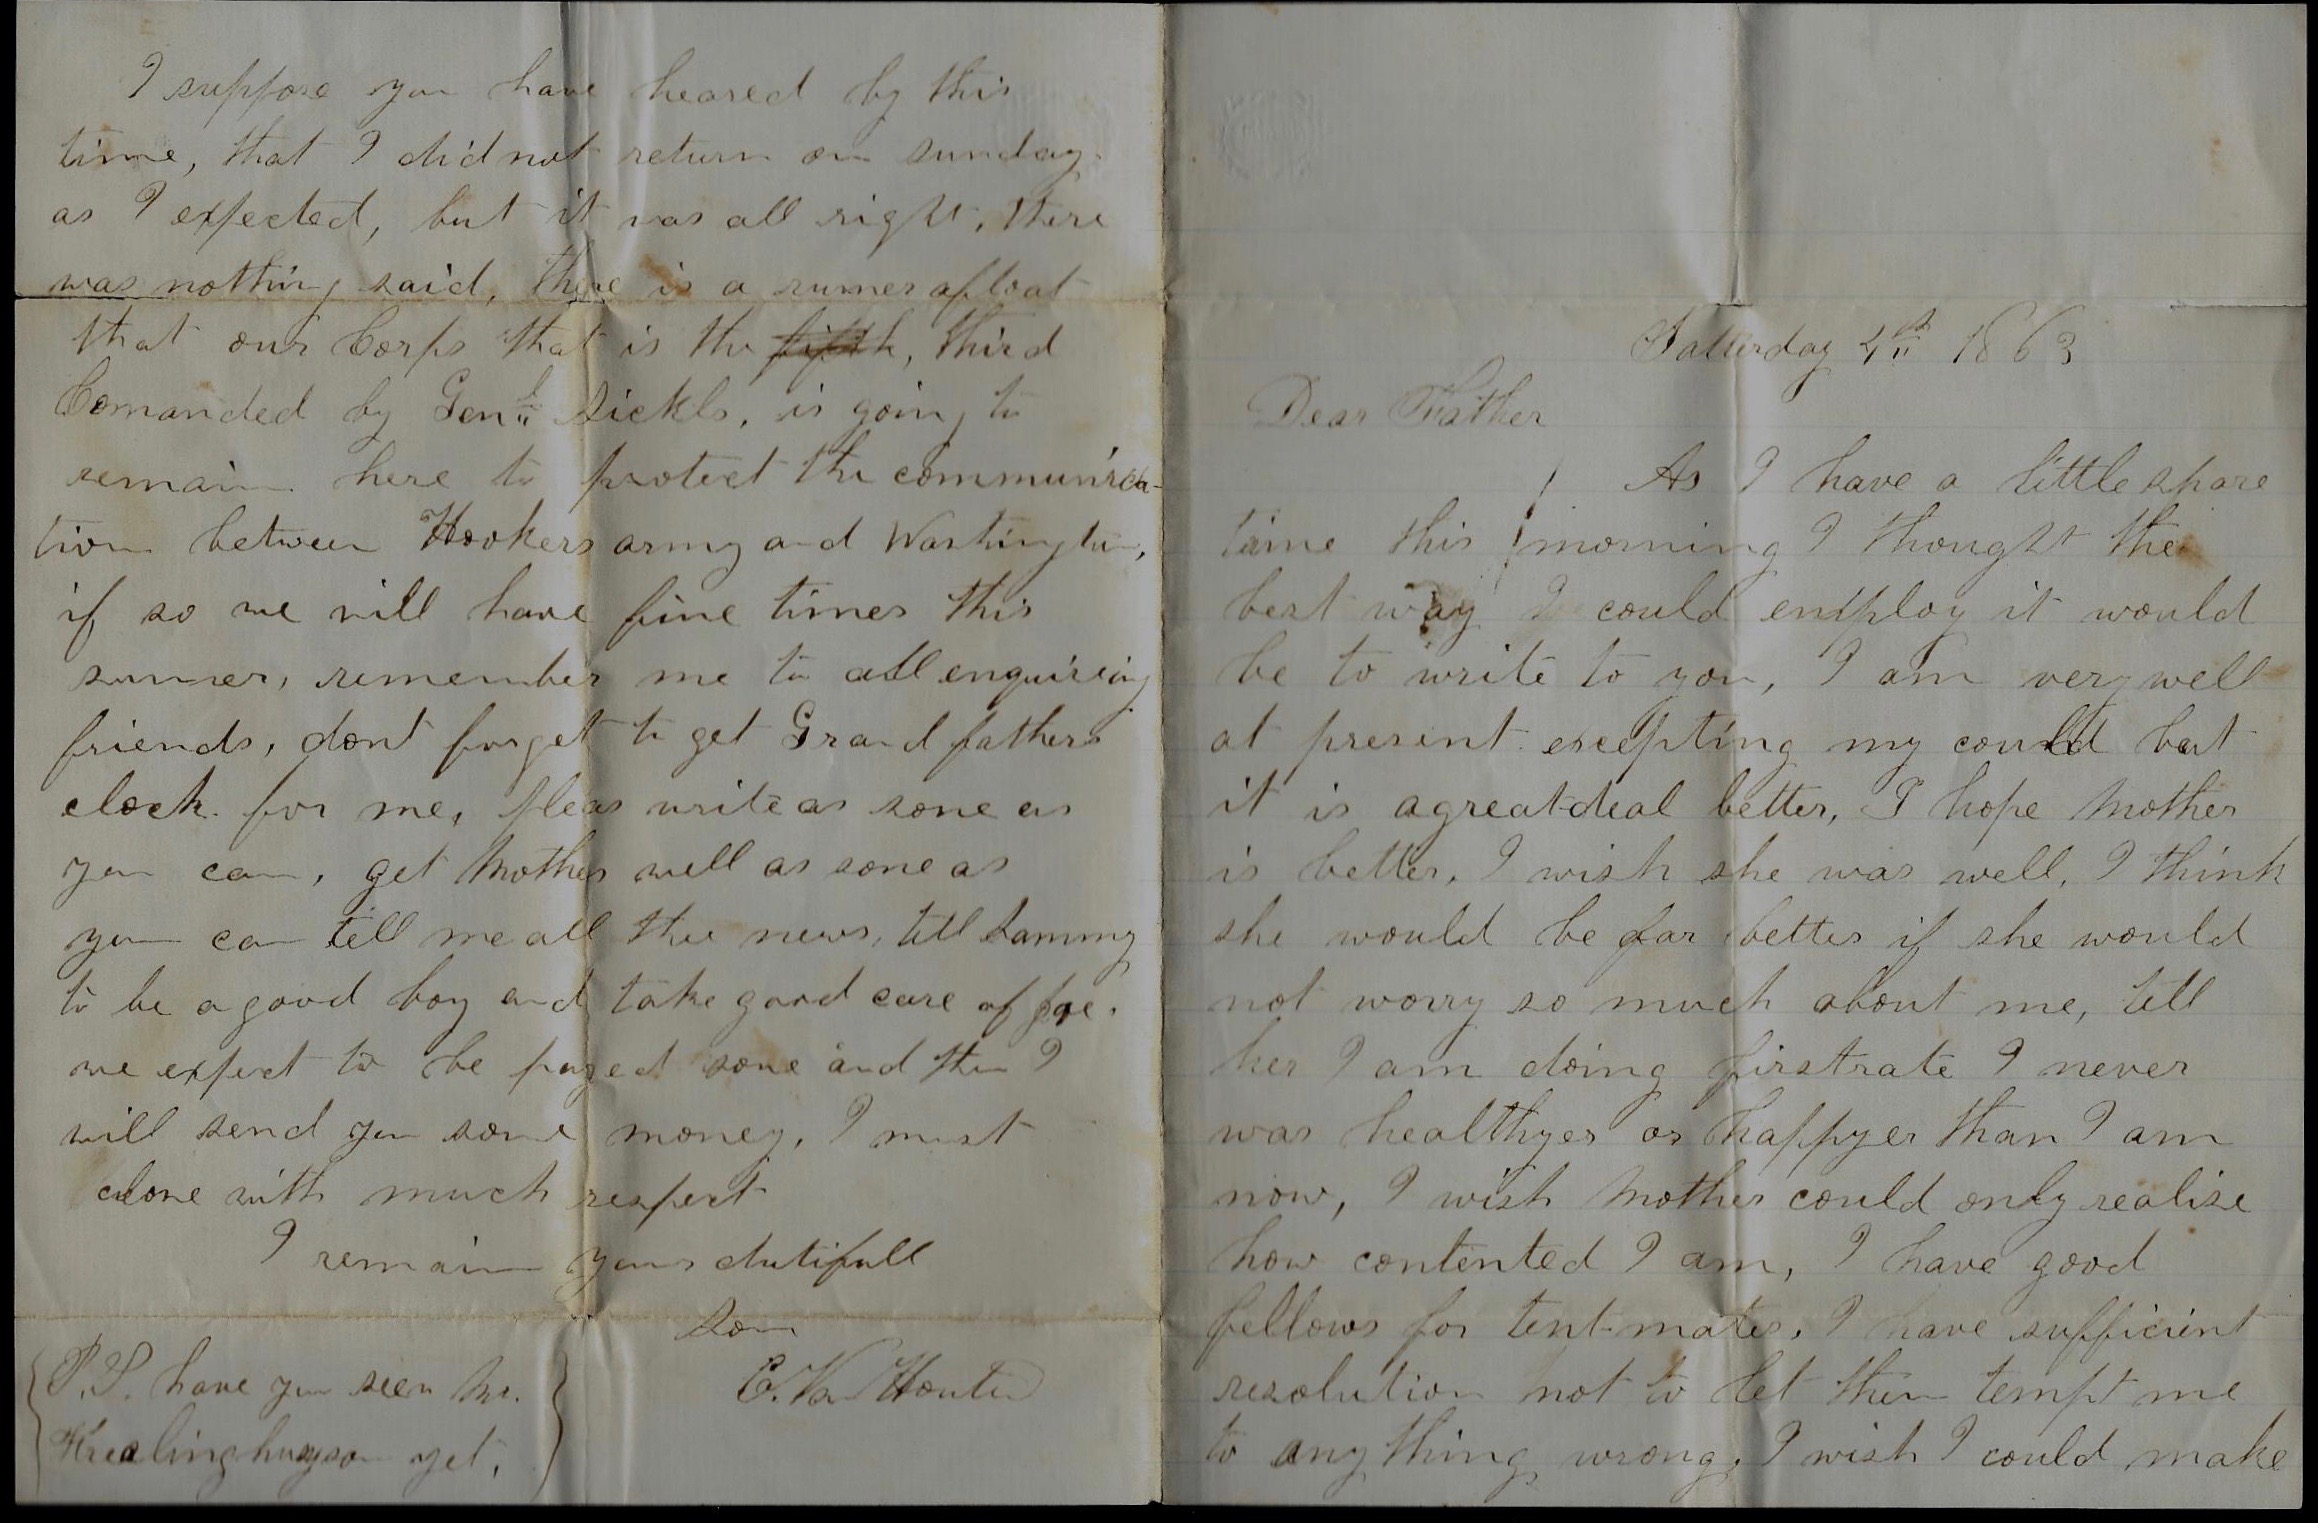 Satterday 4th 1863
Dear Father
As I have a little spare
time this morning I thought the
best way I could employ it would
be to write to you, I am very well
at present excepting my could but
it is a great deal better, I hope Mother
is better, I wish she was well, I think
she would be far better if she would
not worry so much about me, tell
her I am doing firstrate I never
was healthyer or happyer than I am
now, I wish Mother could only realise
how contented I am, I have good
fellows for tent-mates, I have sufficient
resolution not to let them tempt me
to any thing wrong, I wish I could make
I suppose you have heared by this
time, that I did not return on sunday
as I expected, but it was all right, there
was nothing said, there is a rumer afloat
that our Corps that is the fifth, third
Comanded by Genll Sickls, is going to
remain here to protect the communica-
tion between Hookers army and Washington,
if so we will have fine times this
summer, remember me to all enquireing
friends, dont forget to get Grand fathers
clock for me, pleas write as sone as
you can, get Mother well as sone as
you can tell me all the news, tell Sammy
to be a good boy and take good care of Joe.
we expect to be payed sone and then I
will send you some money, I must
close with much respect
I remain yours dutifull
Son
E. Van Houten
P.S. have you seen Mr.
yet,